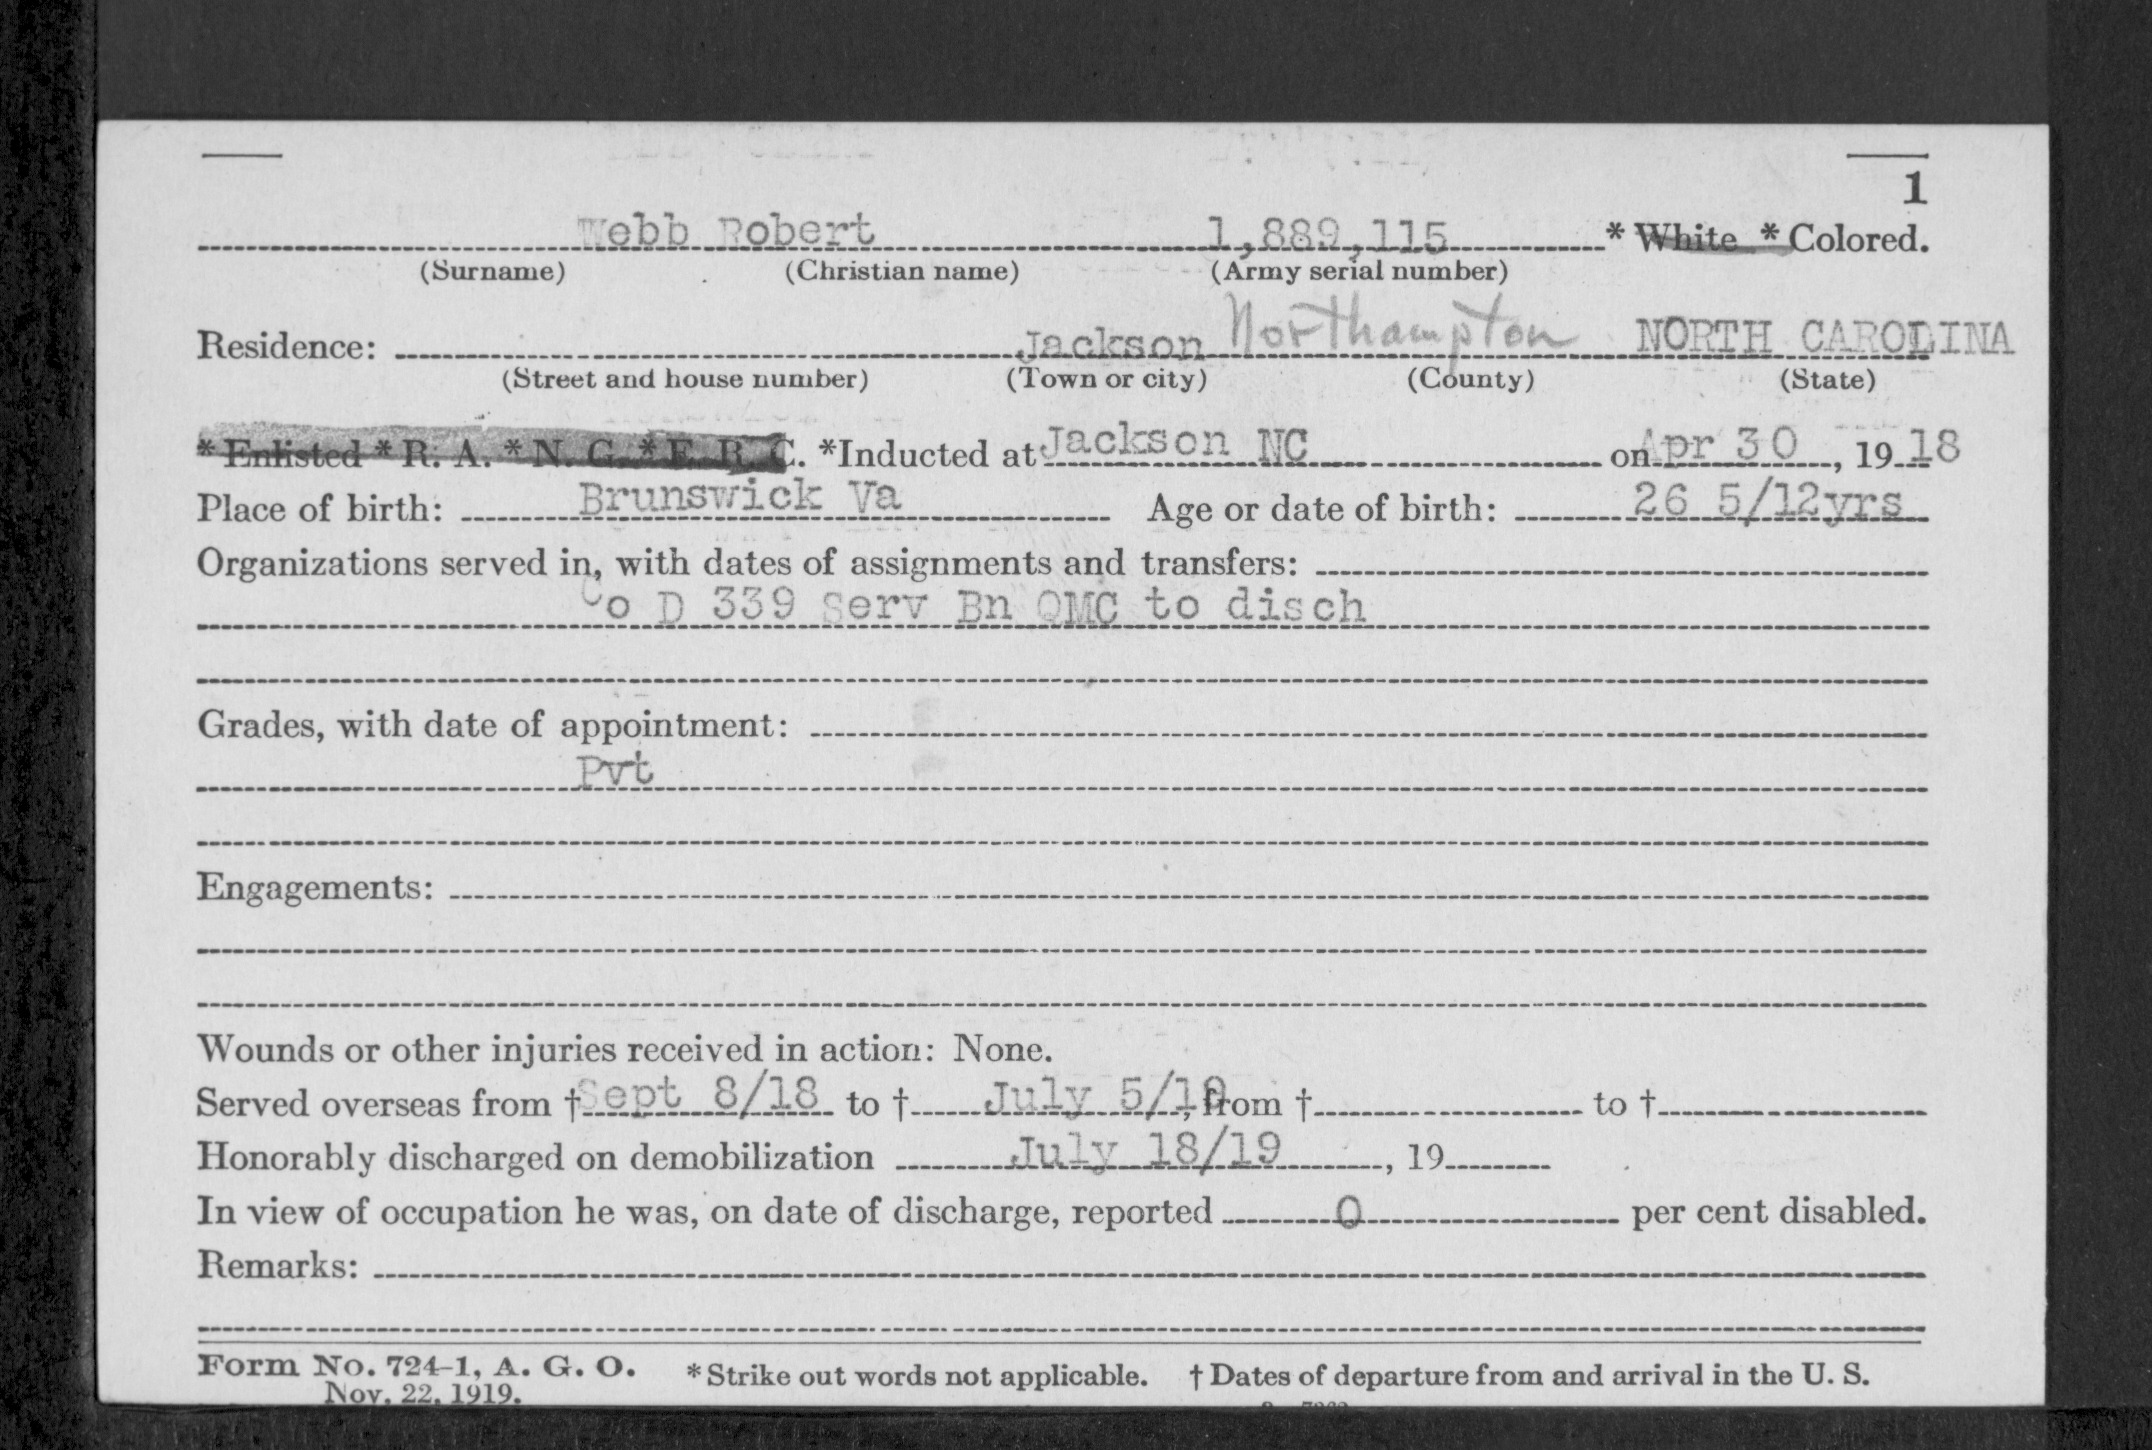 1
Webb Robert 1,889,115 * White * Colored.
(Surname) (Christian name) (Army serial number)
Residence: Jackson Northampton NORTH CAROLINA
(Street and house number) (Town or city) (County) (State)
* Enlisted * R. A. * N. G. * E. R. C. *Inducted at Jackson NC on Apr 30, 1918
Place of birth: Brunswick Va Age or date of birth: 26 5/12yrs
Organizations served in, with dates of assignments and transfers:
Co D 339 Serv Bn QMC to disch
Grades, with date of appointment:
Pvt
Engagements:
Wounds or other injuries received in action: None.
Served overseas from † Sept 8/18 to † July 5/19, from † to †
Honorably discharged on demobilization July 18/19, 19
In view of occupation he was, on date of discharge, reported 0 per cent disabled.
Remarks:
Form No. 724-1, A. G. O. * Strike out words not applicable. † Dates of departure from and arrival in the U. S.
Nov. 22, 1919.